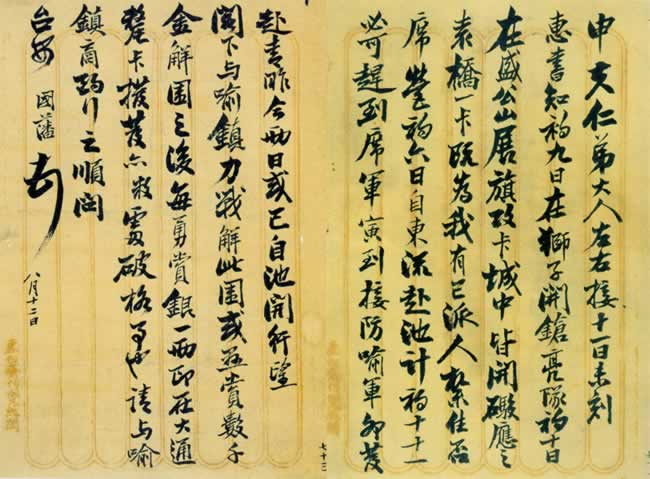 申夫仁弟大人左右接十一日未刻
惠書知初九日在獅子開鎗亮隊初十日
在盛公山展旗攻卡城中皆開礮應之
袁橋一卡既為我有已派人紮住否
席營初六日自東流赴池計初十十一
必可趕到席軍寅到接防喻軍卯發
赴青昨今兩日或已自池開行望
閣下与喻鎮力戰解此圍或並賞數千
金解圍之後每勇賞銀一兩即在大通
釐卡撥發亦數處破格事也請与喻
鎮商酌行之順問
台安 國藩 頓
八月十二日
七十三